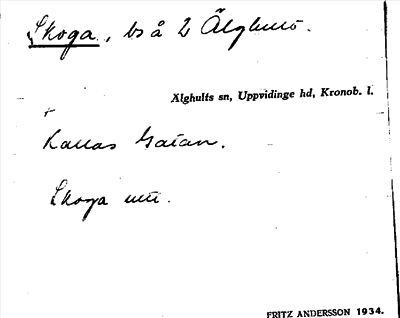 Skoga, bs å 2 Älghult.
Älghults sn, Uppvidinge hd, Kronob. l.
Kallas Gatan.
Skoga
FRITZ ANDERSSON 1934.